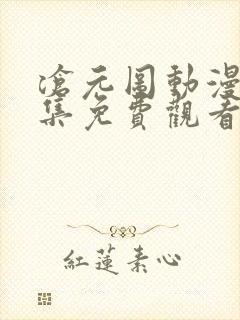 滄元圖動漫
集免費觀看
紅蓮素心